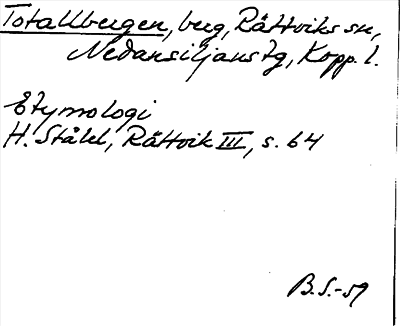 Totallbergen, berg, Rättviks sn,
Nedansiljans tg, Kopp. l.
Etymologi
H. Ståhl, Rättvik III, s. 64
B.S.-59